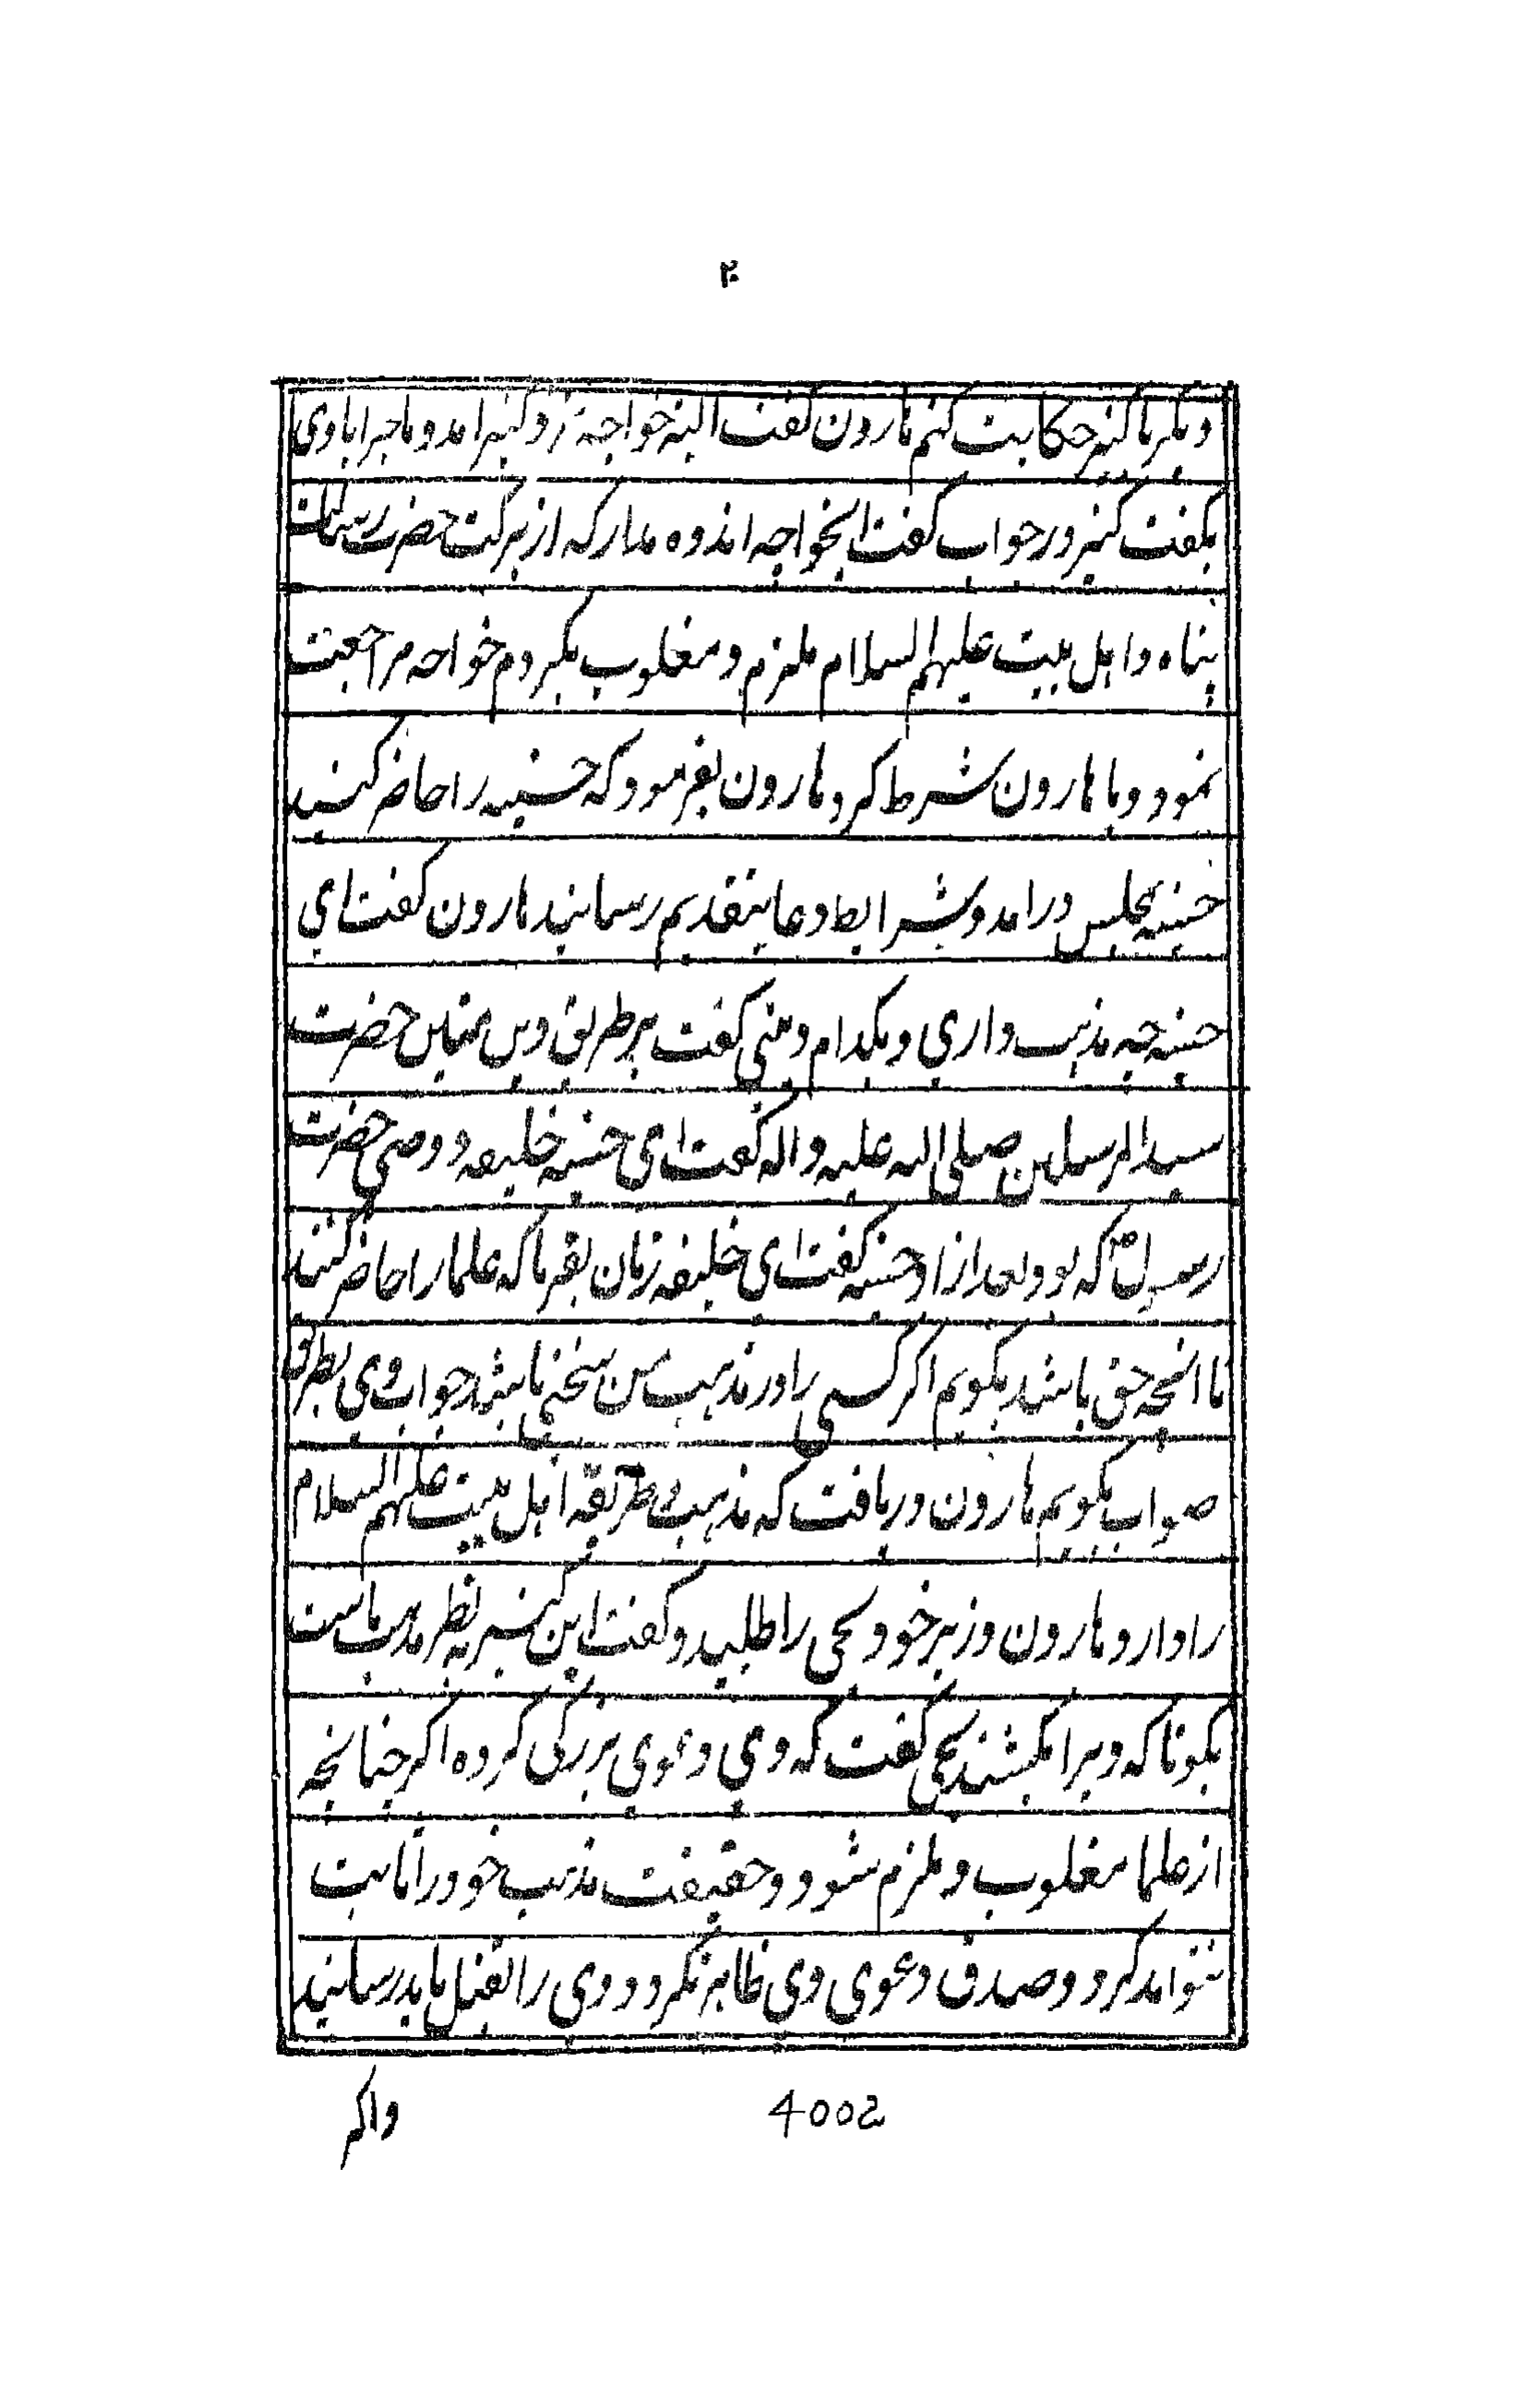 ۴
دیگر با کنیز حکایت کنم هارون گفت البته خواجه نزد کنیز امد و ماجرا با وی
بگفت کنیز در جواب گفت ایخواجه اندوه مدار که از برکت حضرت رسالت
پناه و اهل بیت علیهم السلام ملزم و مغلوب نگردم خواجه مراجعت
نمود و با هارون شرط کرد هارون بفرمود که حسنیه را حاضر کنید
حسنیه بمجلس درامد و بشرایط دعا بتقدیم رسانید هارون گفت ای
حسنیه چه مذهب داری و بکدام دینی گفت بر طریق دین مبین حضرت
سیدالمرسلین صلی الله علیه واله گفت ای حسنیه خلیفه و وصی حضرت
رسول که بود بعد از او حسنیه گفت ای خلیفه زمان بفرما که علما را حاضر کنند
تا انچه حق باشد بگویم اگر کسی را در مذهب من سخنی باشد جواب وی بطریق
صواب بگویم هارون دریافت که مذهب و طریقه اهل بیت علیهم السلام
را دارد هارون وزیر خود یحیی را طلبید و گفت این کنیز به نظر مذهب ماست
بگو تا که ویرا بکشند یحیی گفت که وی دعوی بزرگی کرده اگر چنانچه
از علما مغلوب و ملزم شود و حقیقت مذهب خود را ثابت
نتواند کرد و صدق دعوی وی ظاهر نگردد وی را بقتل باید رسانید
واگر
4002